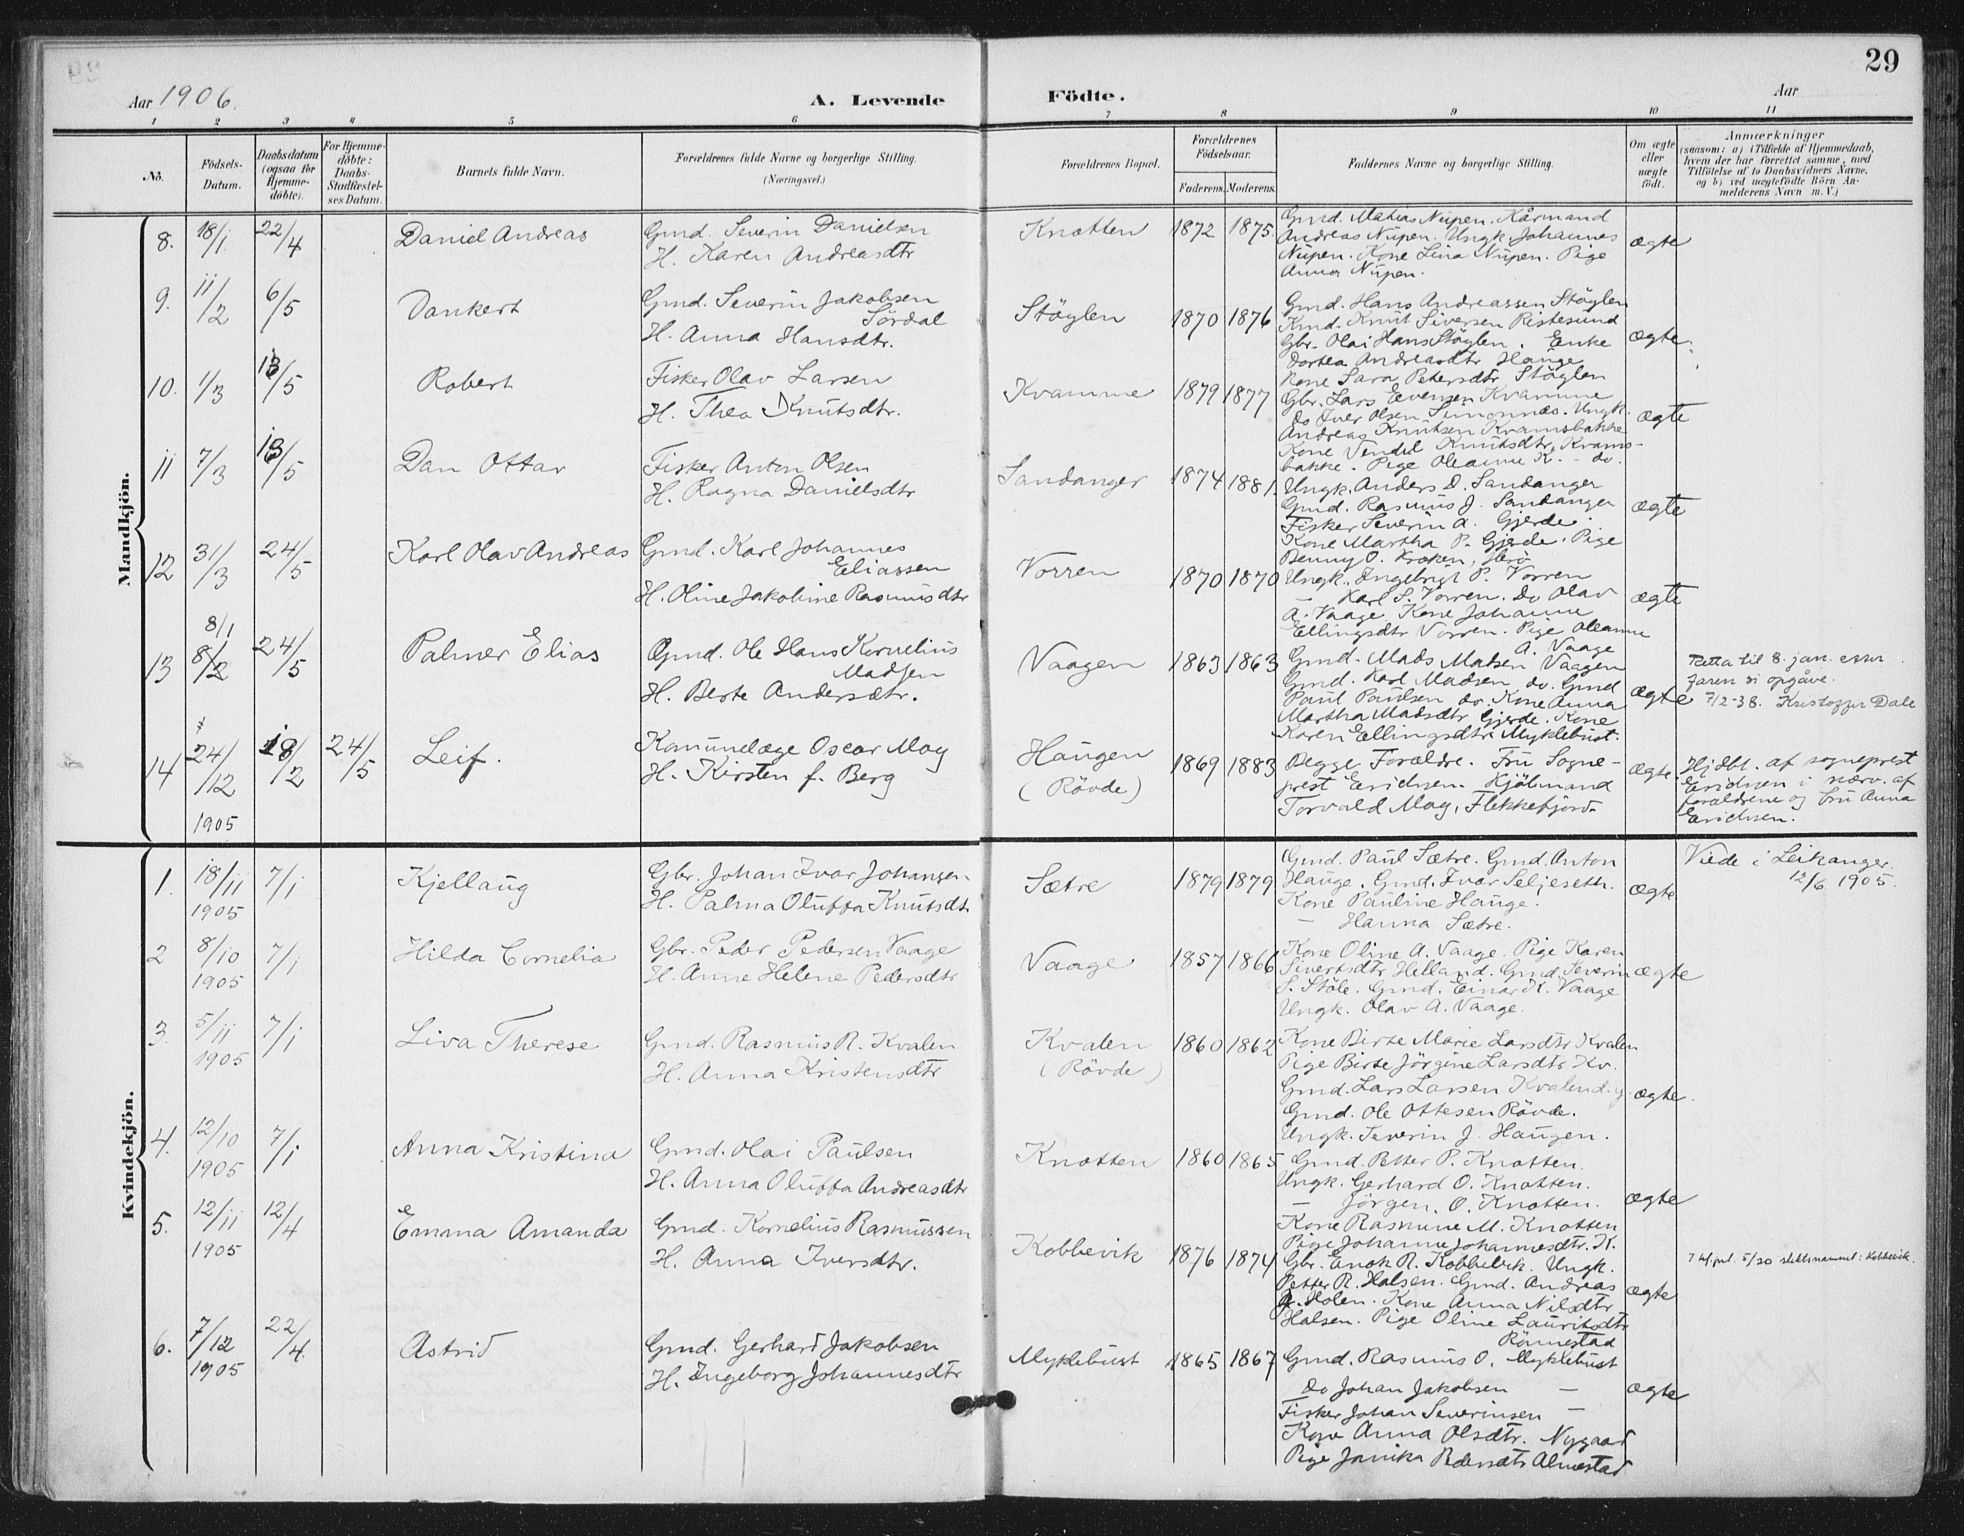 29
Aar 1906.
A. Levende
Födte.
Aar
1 2 3 4 5 6 7 8 9 10 11
No.
Födsels-
Datum.
Daabsdatum
(ogsaa for
Hjemme-
döbte).
For Hjemme-
döbte:
Daabs-
Stadfæstel-
ses Datum.
Barnets fulde Navn.
Forældrenes fulde Navne og borgerlige Stilling.
(Næringsvei.)
Forældrenes Bopæl.
Forældrenes
Födselsaar.
Faderens. Moderens.
Faddernes Navne og borgerlige Stilling.
Om ægte
eller
uægte
födt.
Anmærkninger
(saasom: a) i Tilfælde af Hjemmedaab,
hvem der har forrettet samme, med
Tilföielse af to Daabsvidners Navne,
og b) ved uægtefödte Börn An-
melderens Navn m. V.)
Mandkjön.
8. 18/1 22/4 Daniel Andreas
Gmd. Severin Danielsen
H. Karen Andreasdtr
Knotten 1872 1875
Gmd. Matias Nupen. Kårmand
Andreas Nupen. Ungk. Johannes
Nupen. Kone Lina Nupen. Pige
Anna Nupen.
ægte
9. 11/2 6/5 Dankert
Gmd. Severin Jakobsen
Sördal
H. Anna Hansdtr.
Stöylen 1870 1876
Gmd. Hans Andreassen Stöylen
Kmd. Knut Siversen Ristesund
Gbr. Olai Hans Stöylen. Enke
Dortea Andreasdtr Hauge
Kone Sara Petersdtr Stöylen
ægte
10. 1/3 13/5 Robert
Fisker Olav Larsen
H. Thea Knutsdtr.
Kvamme 1879 1877
Gbr. Lars Evensen Kvamme
Do Iver Olsen Simonnes. Ungk.
Andreas Knutsen Kvamsbakke
Kone Vendel Knutsdtr, Kvams-
bakke. Pige Oleanne K. - do.
ægte
11 7/3 13/5 Dan Ottar
Fisker Anton Olsen
H. Ragna Danielsdtr
Sandanger 1874 1881.
Ungk. Anders D. Sandanger
Gmd. Rasmus J. Sandanger
Fisker Severin A. Gjerde.
Kone Martha P. Gjerde. Pige
Benny O. Kroken, Herö
ægte
12 31/3 24/5 Karl Olav Andreas
Gmd. Karl Johannes
Eliassen
H. Oline Jakobine Rasmusdtr
Vorren 1870 1870
Ungk. Ingebrigt P. Vorren
— Karl S. Vorren. Do Olav
A. Vaage Kone Johanne
Ellingsdtr Vorren. Pige Oleanne
A. Vaage
ægte
8/1
13 8/2 24/5 Palmer Elias
Gmd. Ole Hans Kornelius
Madsen
H. Berte Andersdtr.
Vaagen 1863 1863
Gmd. Mads Matsen Vaagen
Gmd. Karl Madsen do. Gmd
Paul Paulsen do. Kone Anna
Martha Madsdtr Gjerde. Kone
Karen Ellingsdtr Myklebust.
ægte
Retta til 8. jan. etter
faren si opgåve.
7/2-38. Kristoffer Dale
14 24/12 1905 18/2 24/5 Leif.
Komunelæge Oscar Moy
H. Kirsten f. Berg
Haugen
(Rövde)
1869 1883
Begge Forældre. Fru Sogne-
prest Erichsen. Kjöbmand
Torvald Moy, Flekkefjord
ægte
Hjdbt. af sogneprest
Erichsen i nærv. af
forældrene og fru Anna
Erichsen.
Kvindekjön.
1. 18/11 1905 7/1 Kjellaug
Gbr. Johan Ivar Johansen
H. Palma Oluffa Knutsdtr
Sætre 1879 1879
Gmd. Paul Sætre. Gmd. Anton
Hauge. Gmd. Ivar Seljeseth.
Kone Pauline Hauge.
— Hanna Sætre.
ægte
Viede i Leikanger
12/6 1905.
2 8/10 1905 7/1 Hilda Cornelia
Gbr. Peder Pedersen Vaage
H. Anne Helene Pedersdtr
Vaage 1857 1866
Kone Oline A. Vaage. Pige Karen
Sivertsdtr Helland. Gmd. Severin
S. Støle. Gmd. Einar K. Vaage
Ungk. Olav A. Vaage.
ægte
3. 5/11 1905 7/1 Liva Therese
Gmd. Rasmus R. Kvalen
H. Anna Kristensdtr
Kvalen
(Rövde)
1860 1862
Kone Birte Marie Larsdtr Kvalen
Pige Birte Jörgine Larsdtr Kv.
Gmd. Lars Larsen Kvalen d.y.
Gmd. Ole Ottesen Rövde.
Ungk. Severin J. Haugen.
ægte
4. 12/10 1905 7/1 Anna Kristina
Gmd. Olai Paulsen
H. Anna Oluffa Andreasdtr
Knotten 1860 1865
Gmd. Petter P. Knotten.
Ungk. Gerhard O. Knotten.
— Jörgen. O. Knotten.
Kone Rasmine M. Knotten
Pige Johanne Johannesdtr. K.
ægte
5. 12/11 1905 12/4 Emma Amanda
Gmd. Kornelius Rasmussen
H. Anna Iversdtr.
Kobbevik 1876 1874
Gbr. Enok R. Kobbevik. Ungk.
Petter R. Halsen. Gmd. Andreas
A. Holen. Kone Anna Nilsdtr
Halsen. Pige Oline Lauritsdtr
Rönnestad
ægte
5/20 slektsnamnet: Kobbevik.
6. 7/12 1905 22/4 Astrid
Gmd. Gerhard Jakobsen
H. Ingeborg Johannesdtr
Myklebust 1865 1867
Gmd. Rasmus O. Myklebust
Do Johan Jakobsen —
Fisker Johan Severinsen —
Kone Anna Olsdtr. Nygaard
Pige Janika Pedersdtr Almestad
ægte